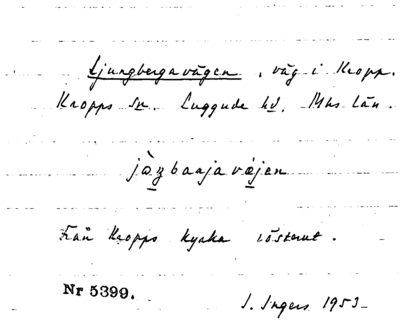 Ljungbergavägen, väg i Kropp.
Kropps sn. Luggude hd. Mhs län.
jæ̀ŋbaaja væ̀jen
Från Kropps kyrka österut.
Nr 5399.
I. Ingers 1953